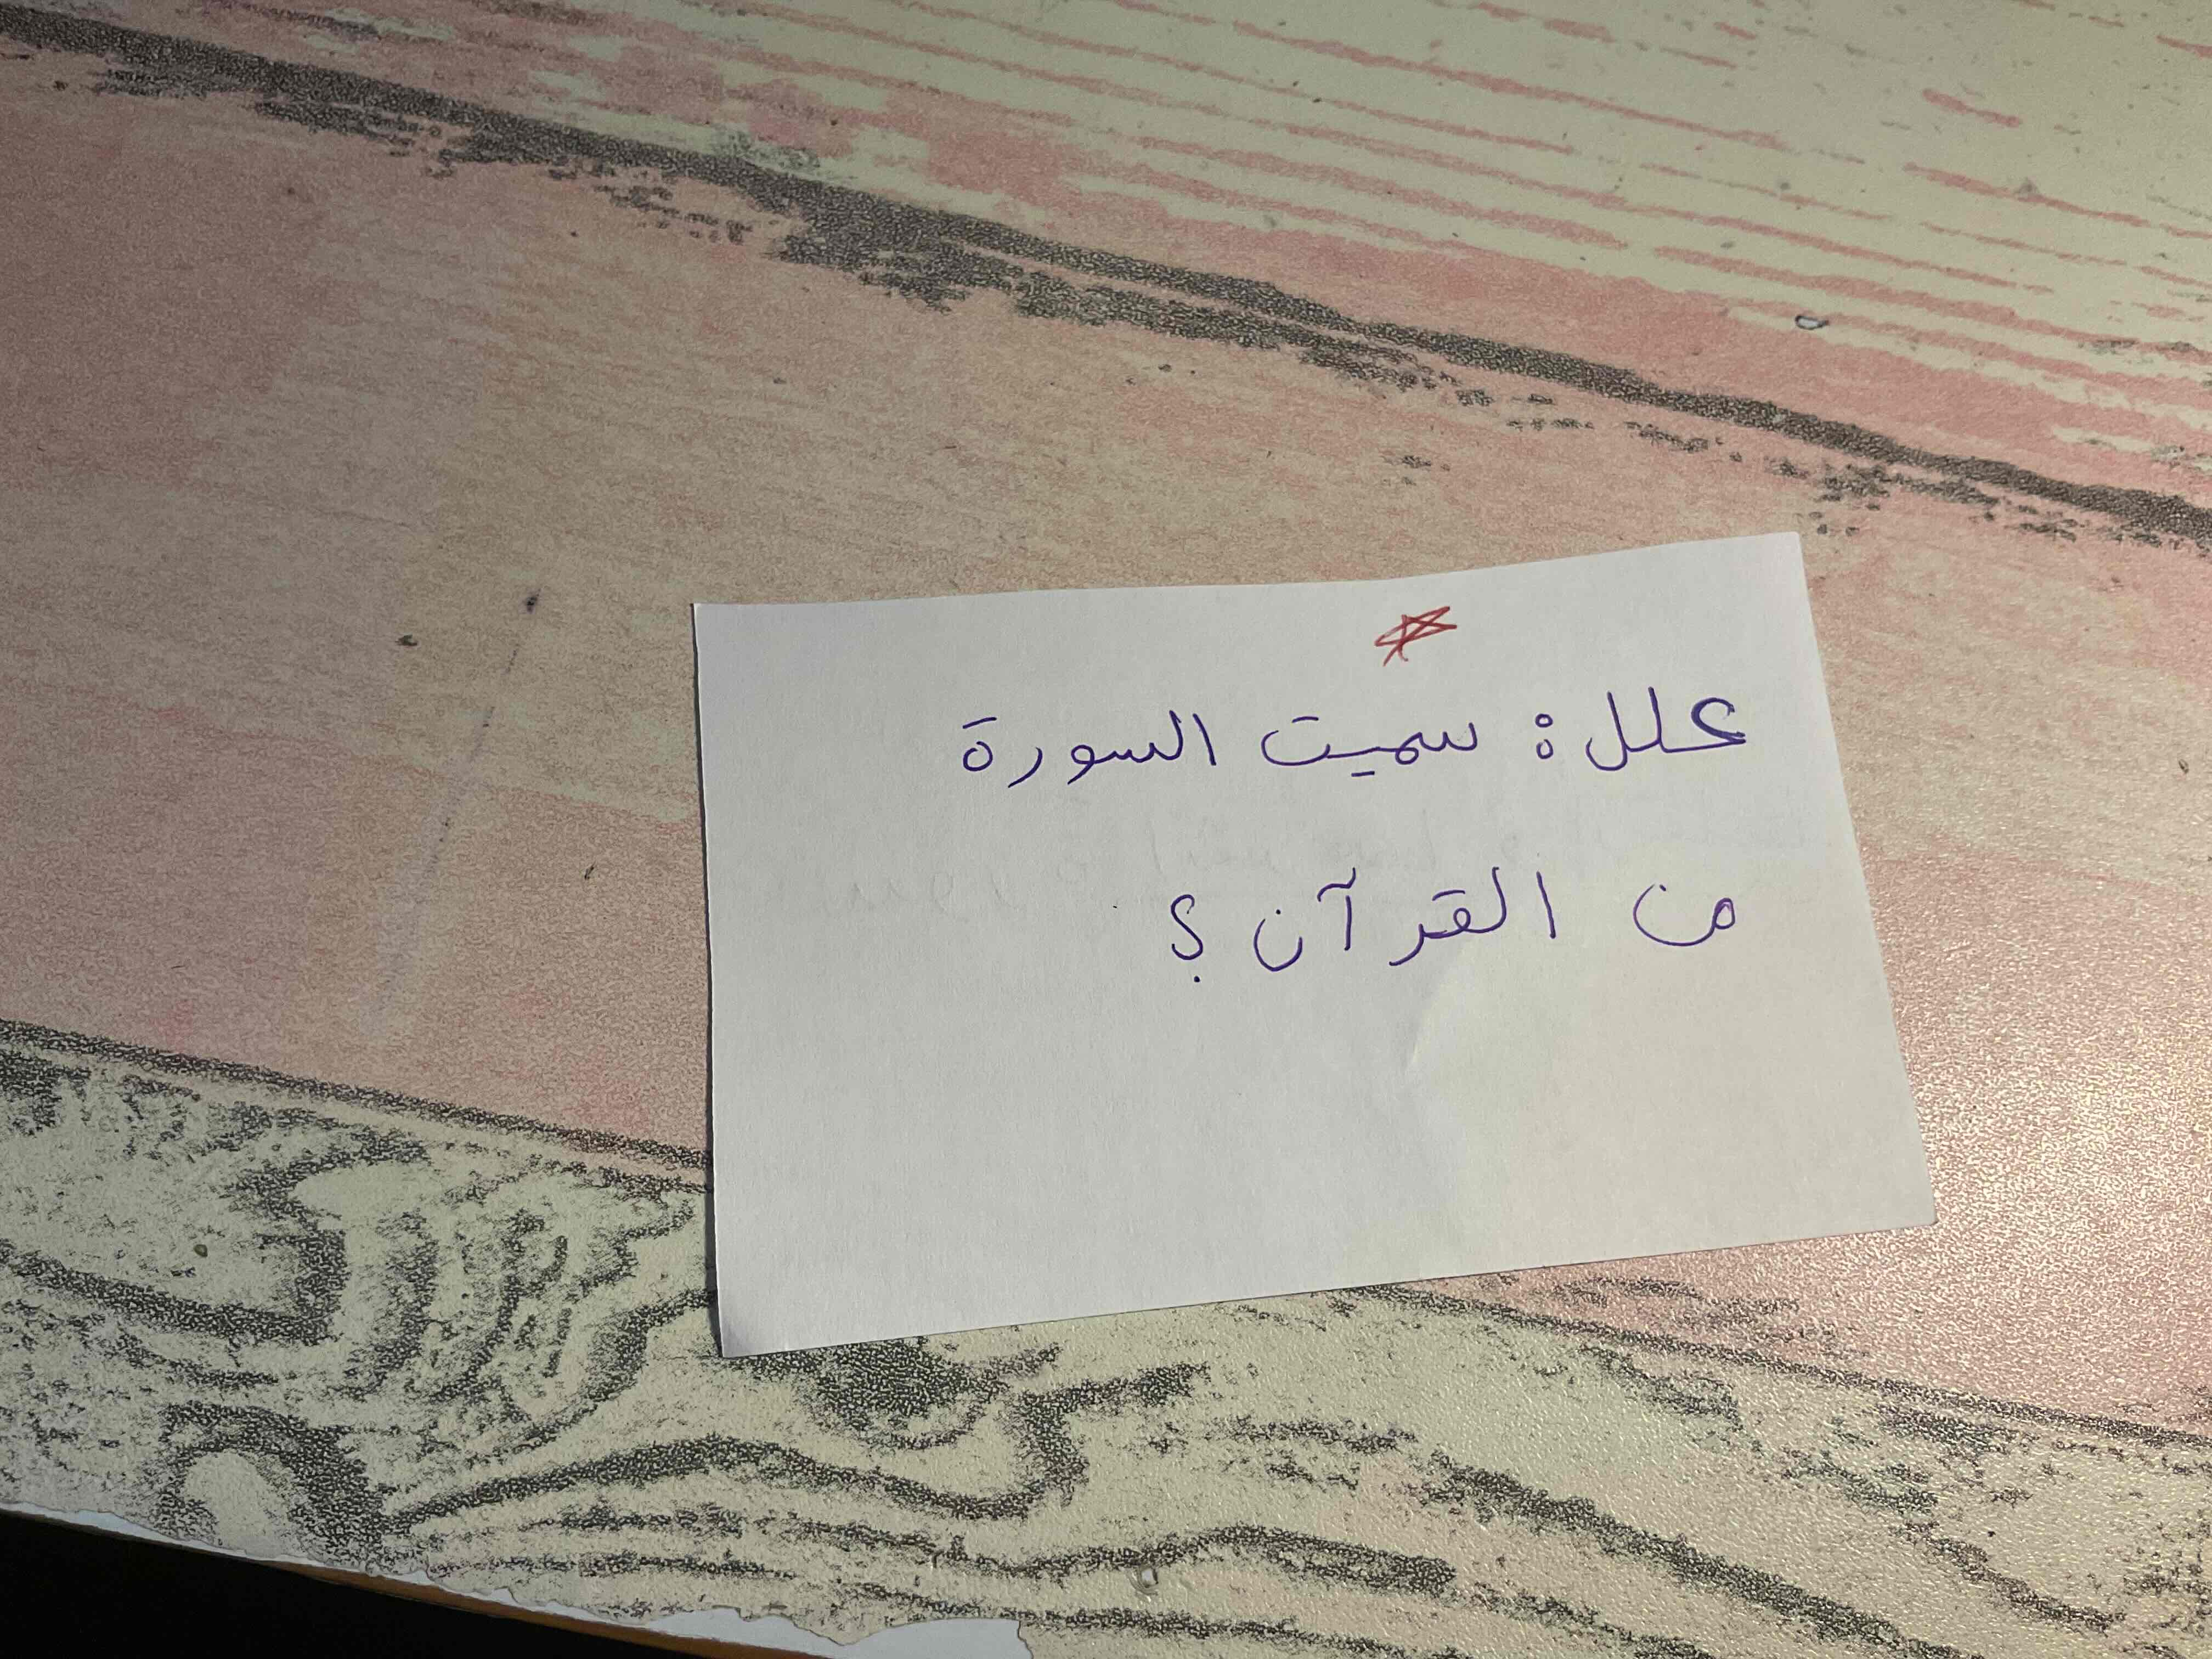 علل: سميت السورة
من القرآن؟